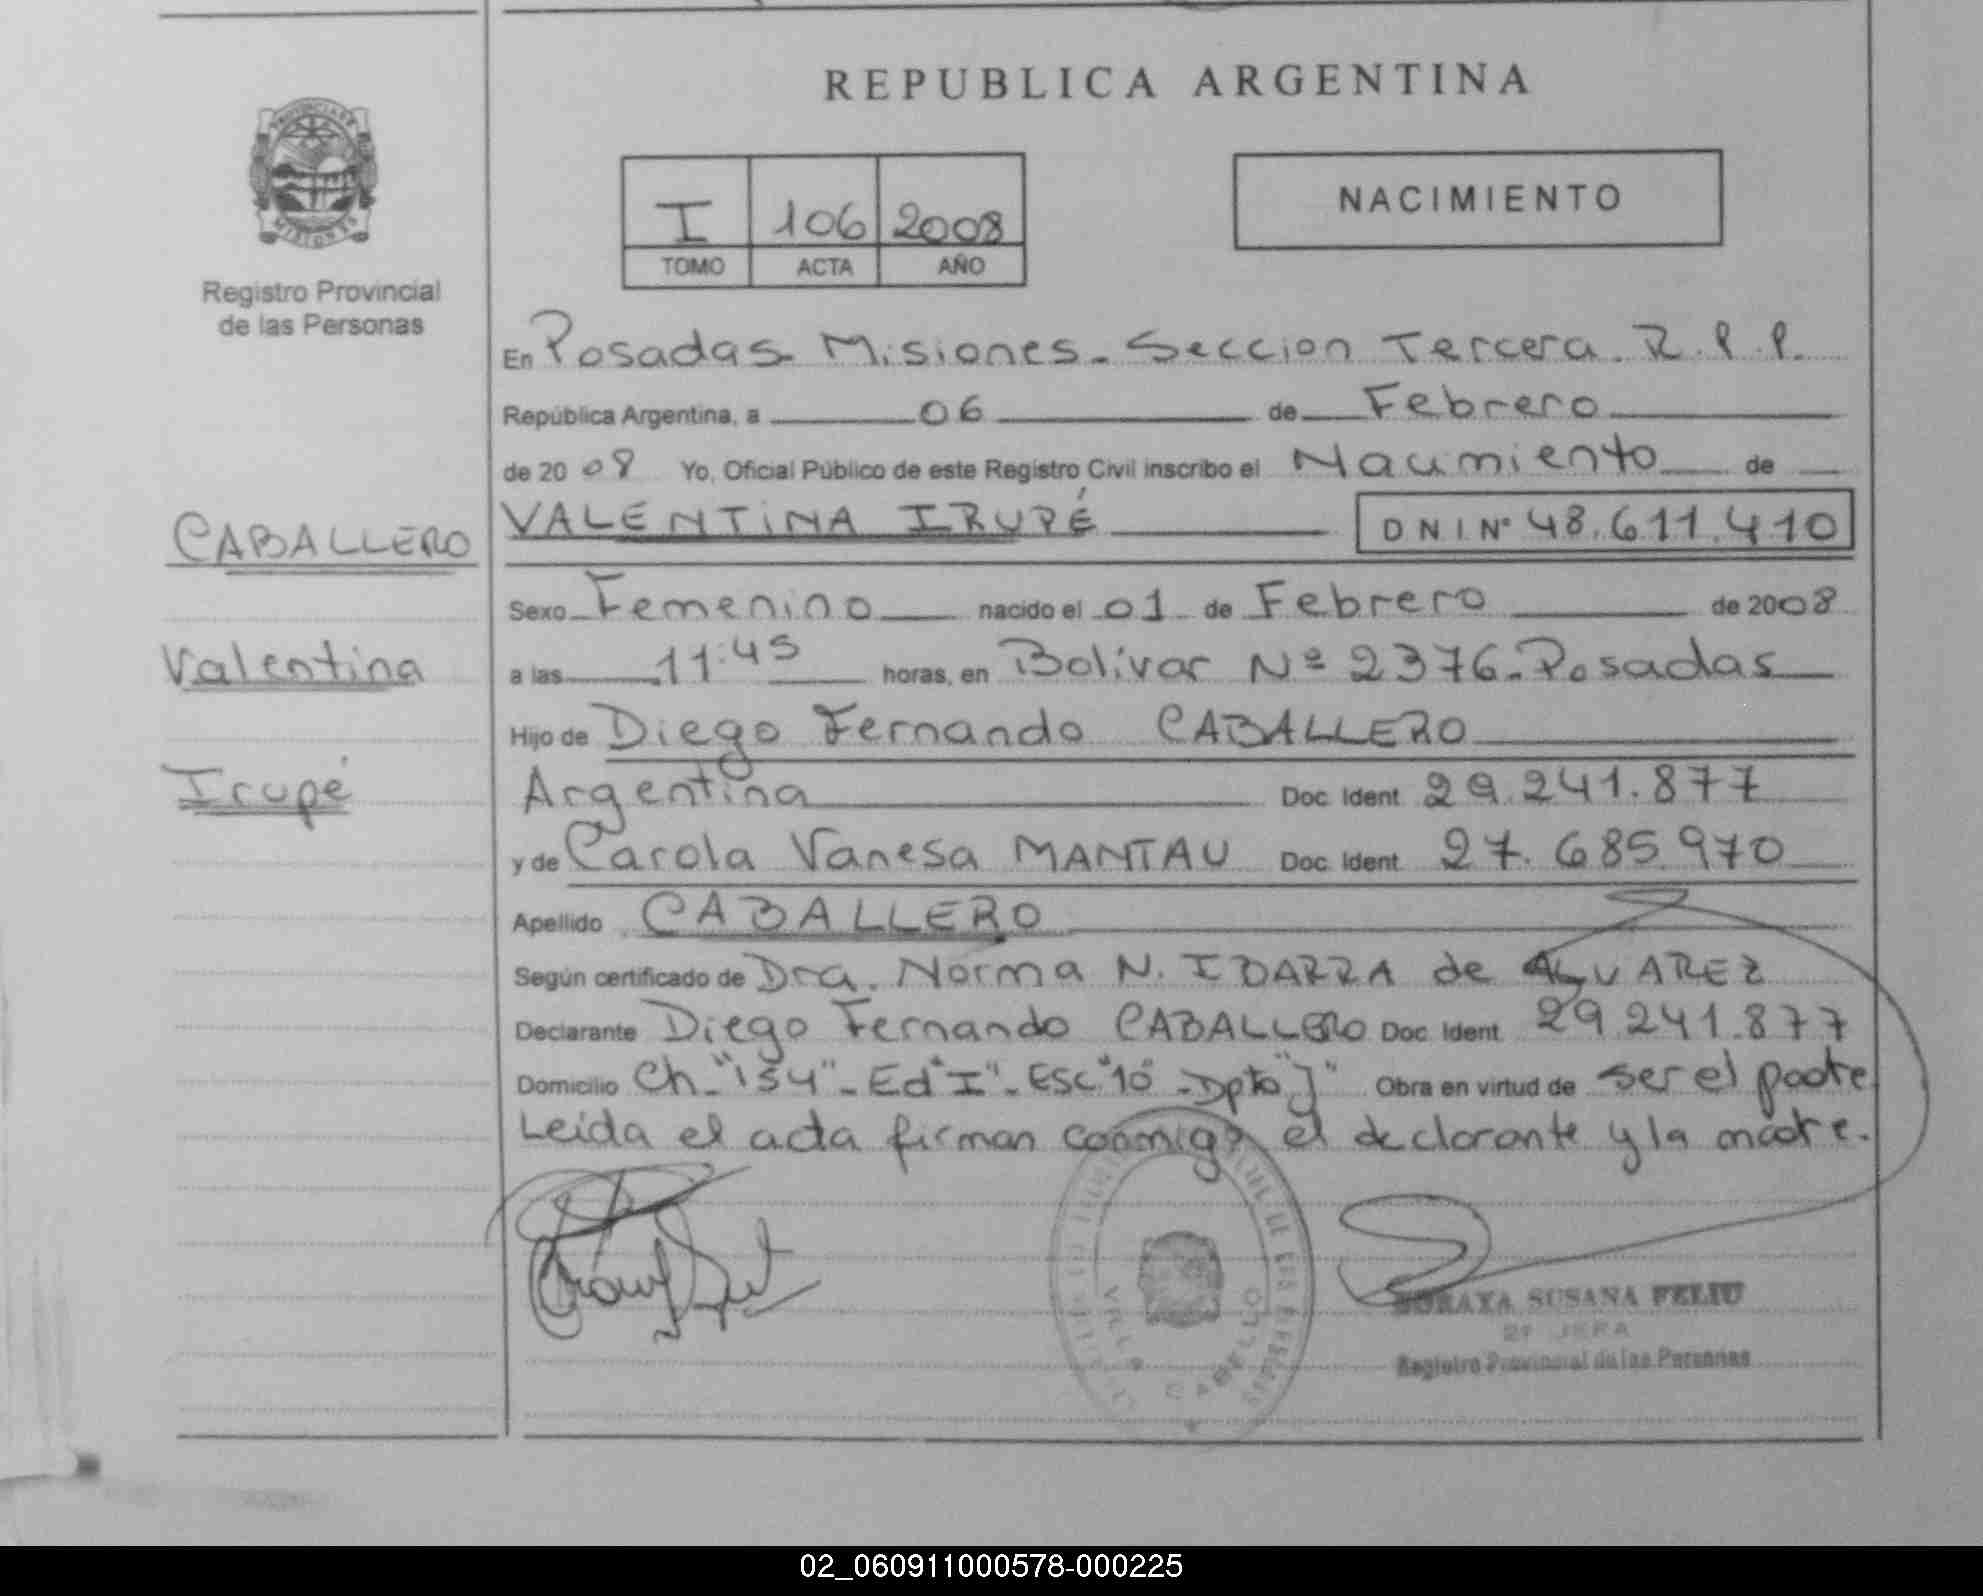 REPUBLICA ARGENTINA
PROVINCIA DE
MISIONES
Registro Provincial
de las Personas
I 106 2008
TOMO ACTA AÑO
NACIMIENTO
En Posadas Misiones - Seccion Tercera R.P.P.
República Argentina, a 06 de Febrero
de 2008 Yo, Oficial Público de este Registro Civil inscribo el Nacimiento de
CABALLERO
Valentina
Irupé
VALENTINA IRUPÉ DNI Nº 48.611.410
Sexo Femenino nacido el 01 de Febrero de 2008
a las 11:45 horas, en Bolívar Nº 2376 - Posadas
Hijo de Diego Fernando CABALLERO
Argentina Doc. Ident 29.241.877
y de Carola Vanesa MANTAU Doc. Ident 27.685.970
Apellido CABALLERO
Según certificado de Dra. Norma N. IBARRA de ALVAREZ
Declarante Diego Fernando CABALLERO Doc. Ident 29.241.877
Domicilio Ch-"154"-Ed"I"-Esc"10"-Dpto"J" Obra en virtud de ser el padre
Leída el acta firman conmigo el declarante y la madre.
VILLA CABELLO
SORAYA SUSANA FELIU
2ª JEFA
Registro Provincial de las Personas
02_060911000578-000225